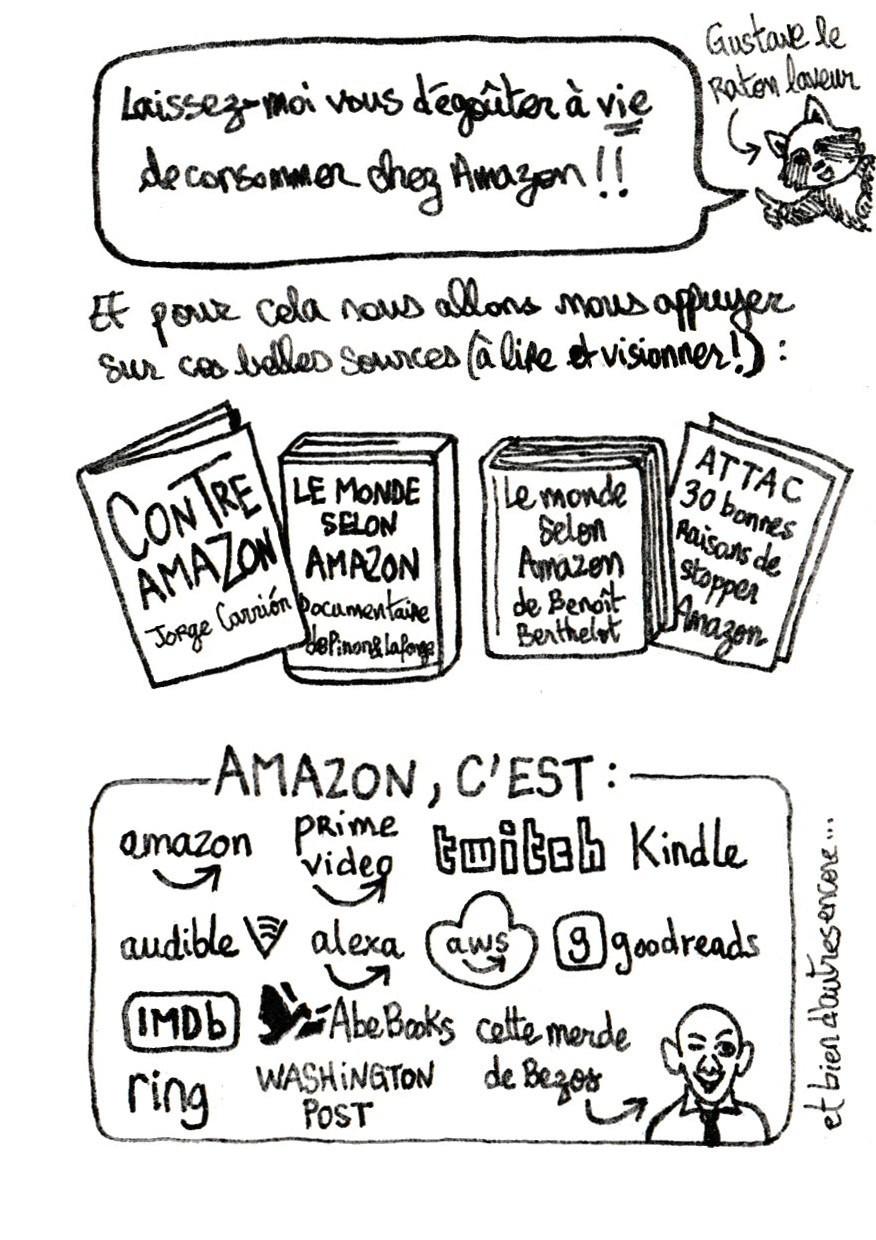 Gustave le
Raton laveur
Laissez-moi vous dégoûter à vie
de consommer chez Amazon !!
Et pour cela nous allons nous appuyer
sur ces belles sources (à lire et visionner!) :
CONTRE
AMAZON
Jorge Carrión
LE MONDE
SELON
AMAZON
Documentaire
de Pinon & Laforge
Le monde
selon
Amazon
de Benoît
Berthelot
ATTAC
30 bonnes
raisons de
stopper
Amazon
AMAZON, C'EST :
amazon
prime
video
twitch
Kindle
audible
alexa
aws
g goodreads
IMDb
AbeBooks
cette merde
de Bezos
ring
WASHINGTON
POST
et bien d'autres encore...